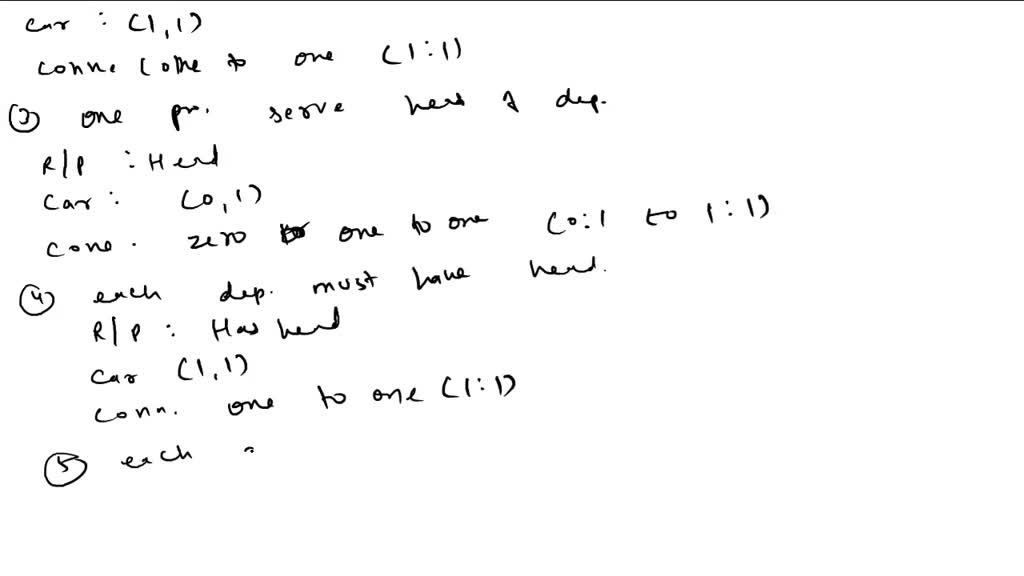 car : (1,1)
conn. (one to one (1:1)
(3) one pr. serve head of dep.
R/P : Head
car : (0,1)
cone. zero to one to one (0:1 to 1:1)
(4) each dep. must have head.
R/P : Has head
car (1,1)
conn. one to one (1:1)
(5) each